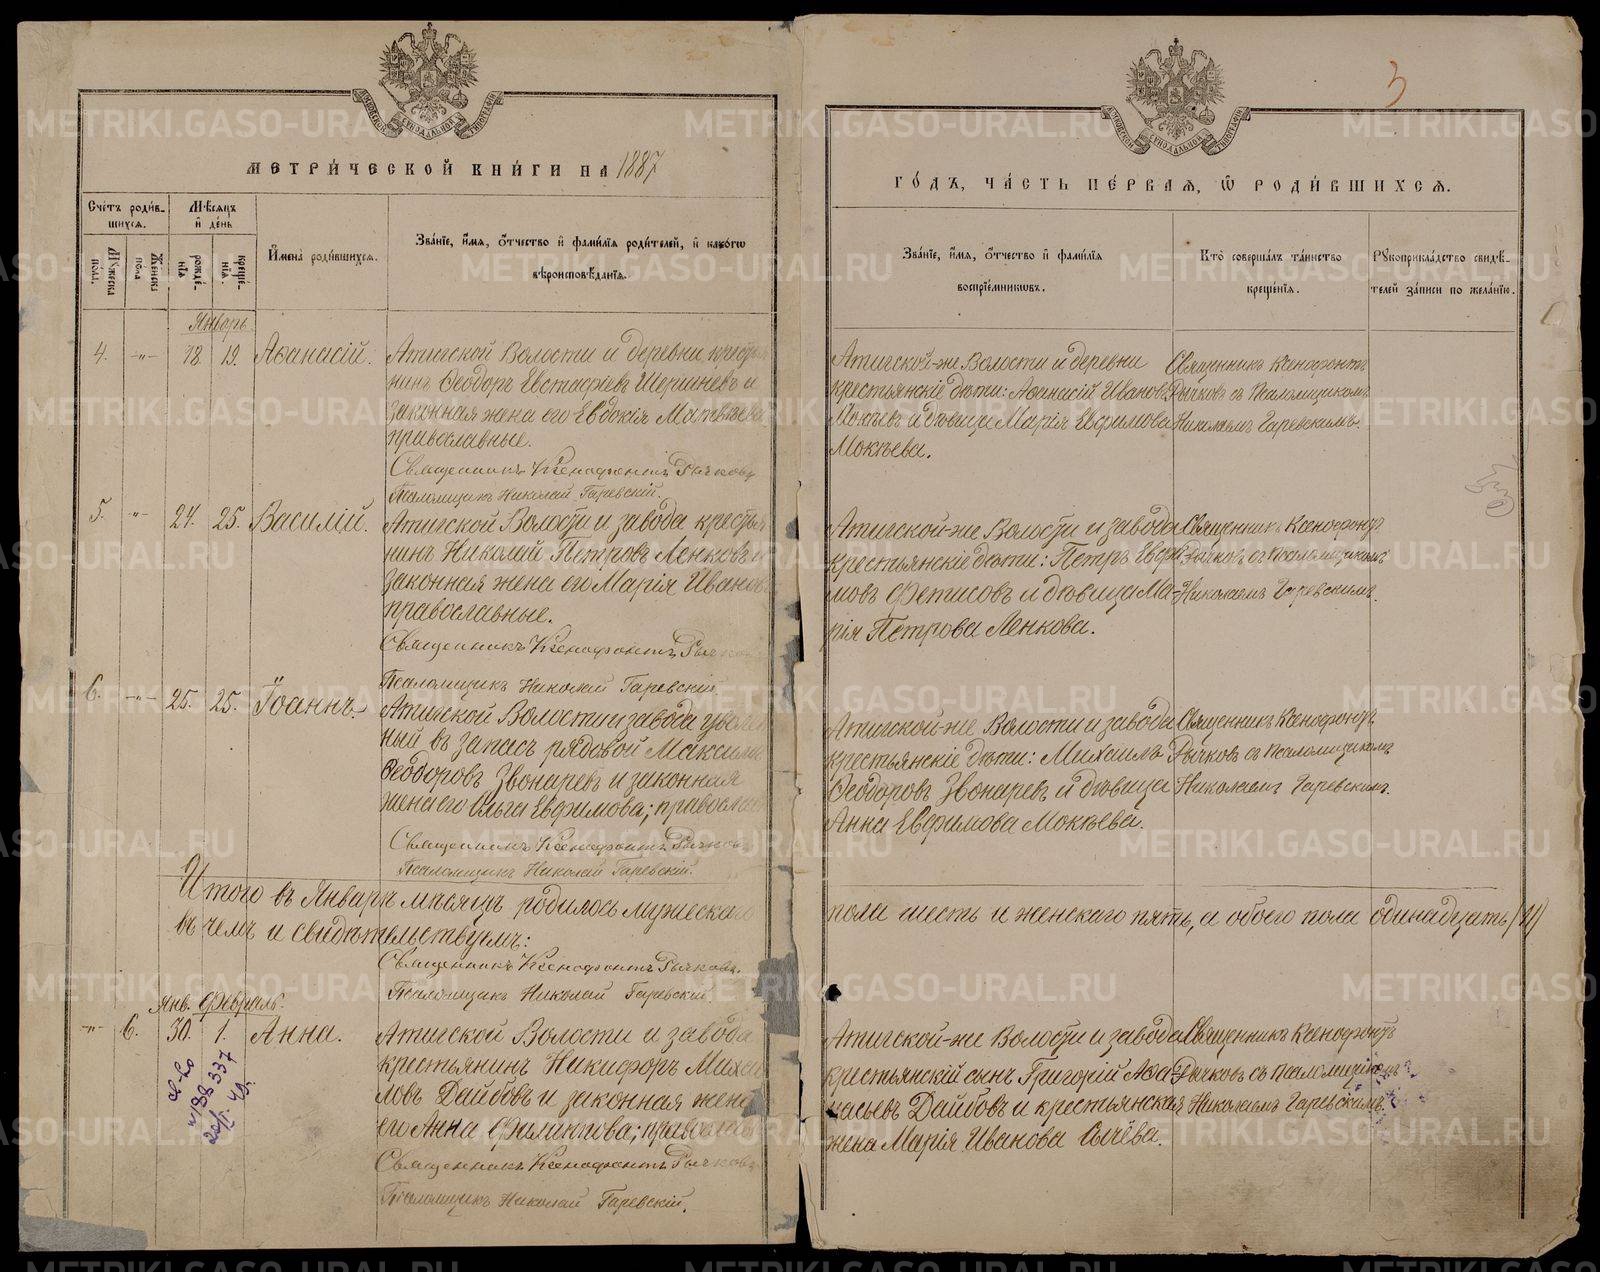 МЕТРИ́ЧЕСКОЙ КНИ́ГИ НА 1887
Сче́тъ роди́в-
шихся.
Мѣ́сяцъ
и҆ де́нь
Му́жеска по́ла.
Же́нска по́ла
рожде́-
нїя.
креще́-
нїя.
И҆мена̀ роди́вшихся.
Зва́нїе, и҆́мя, ѻ҆́тчество и҆ фами́лїя роди́телей, и҆ како́гѡ
вѣроисповѣ́данїя.
Январь
4. -„- 18 19. Аѳанасій. Атигской Волости и деревни крестья
нинъ Ѳеодоръ Евстафіевъ Шершневъ и
законная жена его Евдокія Матвѣева
православные.
Священникъ Ксенофонтъ Рычковъ
Псаломщикъ Николай Гаревскій.
5. -„- 24. 25. Василій. Атигской Волости и завода крестья
нинъ Николай Петровъ Ленковъ и
законная жена его Марія Иванов
православные.
Священникъ Ксенофонтъ Рычков
Псаломщикъ Николай Гаревскій
6. -„- 25. 25. Іоаннъ. Атигской Волости и завода уволен
ный въ запасъ рядовой Максимъ
Ѳеодоровъ Звонаревъ и законная
жена его Ольга Евфимова; православ
Священникъ Ксенофонтъ Рычков
Псаломщикъ Николай Гаревскій.
Итого въ Январѣ мѣсяцѣ родилось мужескаго
въ чемъ и свидѣтельствуемъ:
Священникъ Ксенофонтъ Рычковъ.
Псаломщикъ Николай Гаревскій.
Янв. Февраль.
-„- 6. 30. 1. Анна. Атигской Волости и завода
крестьянинъ Никифоръ Михаи
ловъ Дайбовъ и законная жена
его Анна Филиппова; православ
Священникъ Ксенофонтъ Рычковъ
Псаломщикъ Николай Гаревскій.
3
ГО́ДЪ, ЧА́СТЬ ПЕ́РВАЯ, Ѽ РОДИ́ВШИХСЯ.
Зва́нїе, и҆́мя, ѻ҆́тчество и҆ фами́лїя
воспрїе́мниковъ.
Кто̀ соверша́лъ та́инство
креще́нїя.
Рукоприкла́дство свидѣ́-
телей за́писи по жела́нїю.
Атигской-же Волости и деревни
крестьянскіе дѣти: Аѳанасій Иванов
Мокѣевъ и дѣвица Марія Ефимова
Мокѣева.
Священникъ Ксенофонтъ
Рычковъ съ Псаломщикомъ
Николаемъ Гаревскимъ.
Атигской-же Волости и завода
крестьянскіе дѣти: Петръ Евфи
мовъ Фетисовъ и дѣвица Ма-
рія Петрова Ленкова.
Священникъ Ксенофонтъ
Рычковъ съ Псаломщикомъ
Николаемъ Гаревскимъ.
Атигской-же Волости и завода
крестьянскіе дѣти: Михаилъ
Ѳеодоровъ Звонаревъ и дѣвица
Анна Евфимова Мокѣева.
Священникъ Ксенофонтъ
Рычковъ съ Псаломщикомъ
Николаемъ Гаревскимъ.
пола шесть и женскаго пять, а обоего пола одинадцать (11)
Атигской-же Волости и завода
крестьянскій сынъ Григорій Аѳа-
насьевъ Дайбовъ и крестьянская
жена Марія Иванова Сычёва.
Священникъ Ксенофонтъ
Рычковъ съ Псаломщикомъ
Николаемъ Гаревскимъ.
METRIKI.GASO-URAL.RU